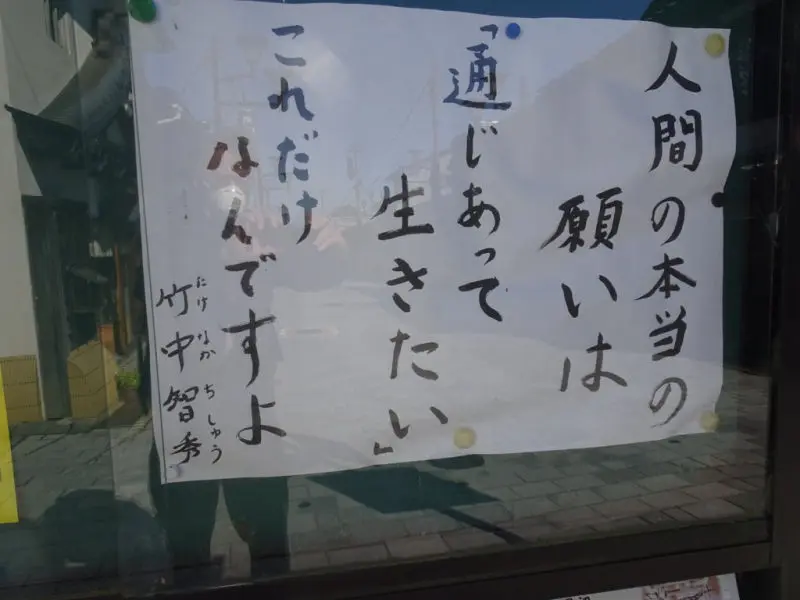 人間の本当の
願いは
「通じあって
生きたい」
これだけ
なんですよ
竹中智秀
たけ なか ち しゅう